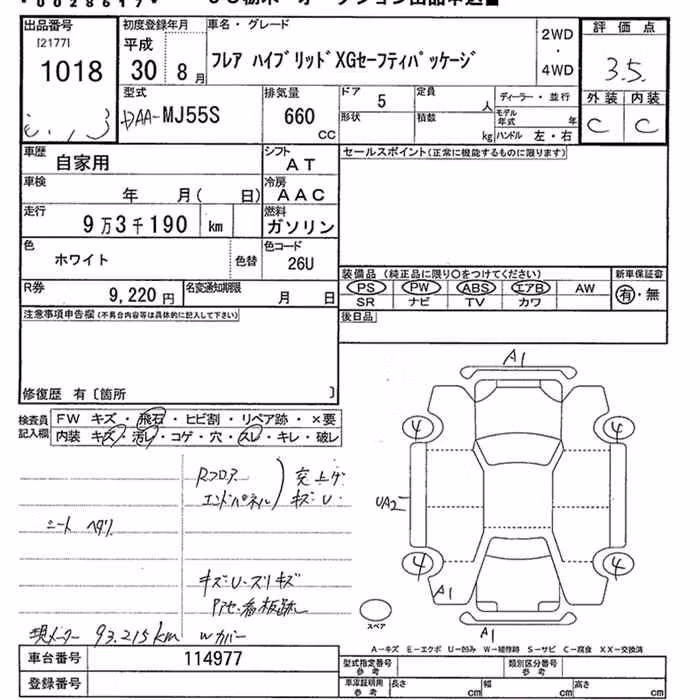 出品番号
[2177]
1018
初度登録年月
平成
30年8月
車名・グレード
フレア ハイブリッドXGセーフティパッケージ
2WD
・
4WD
評価点
3.5
外装 内装
C C
型式
DAA-MJ55S
排気量
660
CC
ドア
5
定員
人
ディーラー・並行
モデル年式 年
形状
積数
kg
ハンドル 左・右
車歴
自家用
シフト
AT
セールスポイント(正常に機能するものに限ります)
車検
年 月( 日)
冷房
AAC
走行
9万3千190 km
燃料
ガソリン
色
ホワイト
色替
色コード
26U
装備品(純正品に限り○をつけてください)
新車保証書
PS PW ABS エアB AW
有・無
SR ナビ TV カワ
R券
9,220円
名変通知期限
月 日
後日品
注意事項申告欄(不具合内容等は具体的に記入して下さい)
修復歴 有〔箇所 〕
検査員
記入欄
FW キズ・飛石・ヒビ割・リペア跡・×要
内装 キズ・汚レ・コゲ・穴・スレ・キレ・破レ
Rフロア
エンドパネル
突上ゲ
キズ・U
シート ヘタリ
キズ・U・スリキズ
現メーター 93,215km
Wカバー
A1
4 4
UA2
4 4
A1
A1
スペア
A-キズ E-エクボ U-凹み W-補修跡 S-サビ C-腐食 XX-交換済
車台番号
114977
登録番号
型式指定番号
参考
類別区分番号
参考
車庫証明用
参考
長さ cm
幅 cm
高さ cm